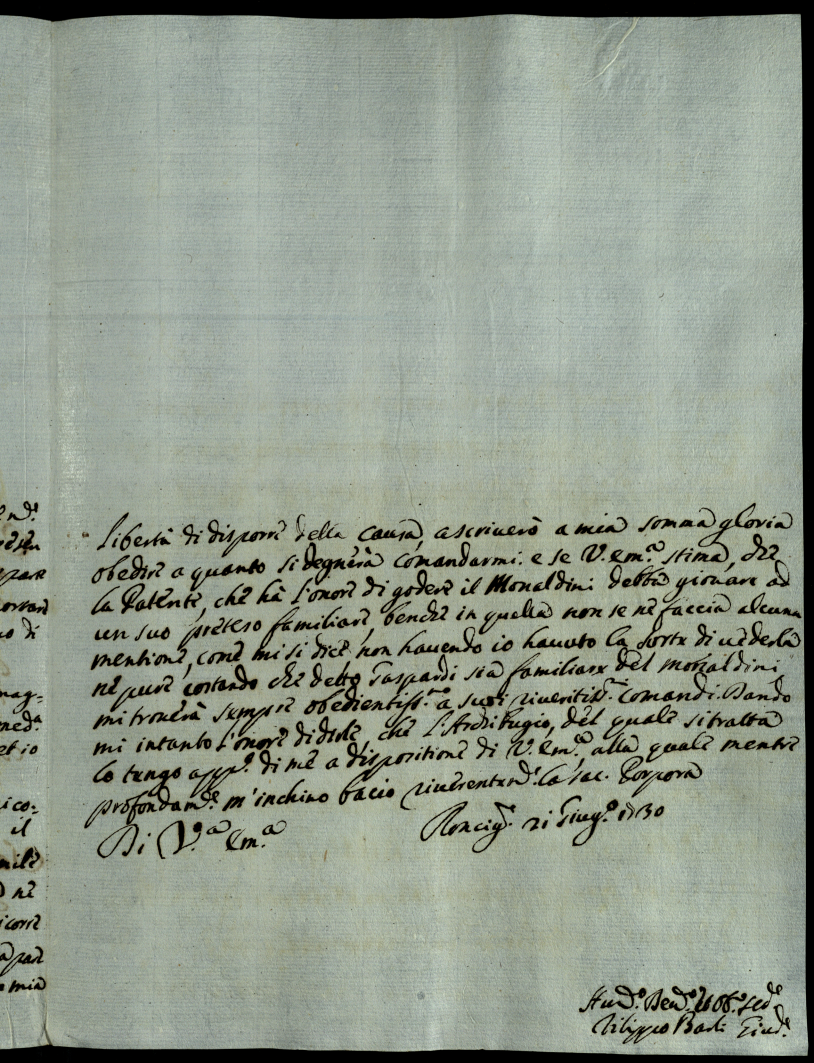 libertà di disporre della causa, ascriverò a mia somma gloria
obedire a quanto si degnerà comandarmi. e se V. Em.ᵃ stima, che
la Patente, che hà l'onore di godere il Monaldini debba giovare ad
un suo preteso familiare, benche in quella non se ne faccia alcuna
mentione, come mi si dice, non havendo io havuto la sorte di vederla
ne pure costando che detto Gaspardi sia familiare del Monaldini
mi troverà sempre obedientiss.ᵐᵒ a suoi riveritiss.ᵐⁱ comandi. Dando
mi intanto l'onore di dirle, che l'Archibugio, del quale si tratta
lo tengo app.ᵒ di me a dispositione di V. Em.ᵃ, alla quale mentre
profondam.ᵉ m'inchino bacio riverentem.ᵉ la sac. Porpora
Di V.ᵃ Em.ᵃ
Roncig.ᵉ 21 Giug.ᵒ 1730
Filippo Giud.ᵉ